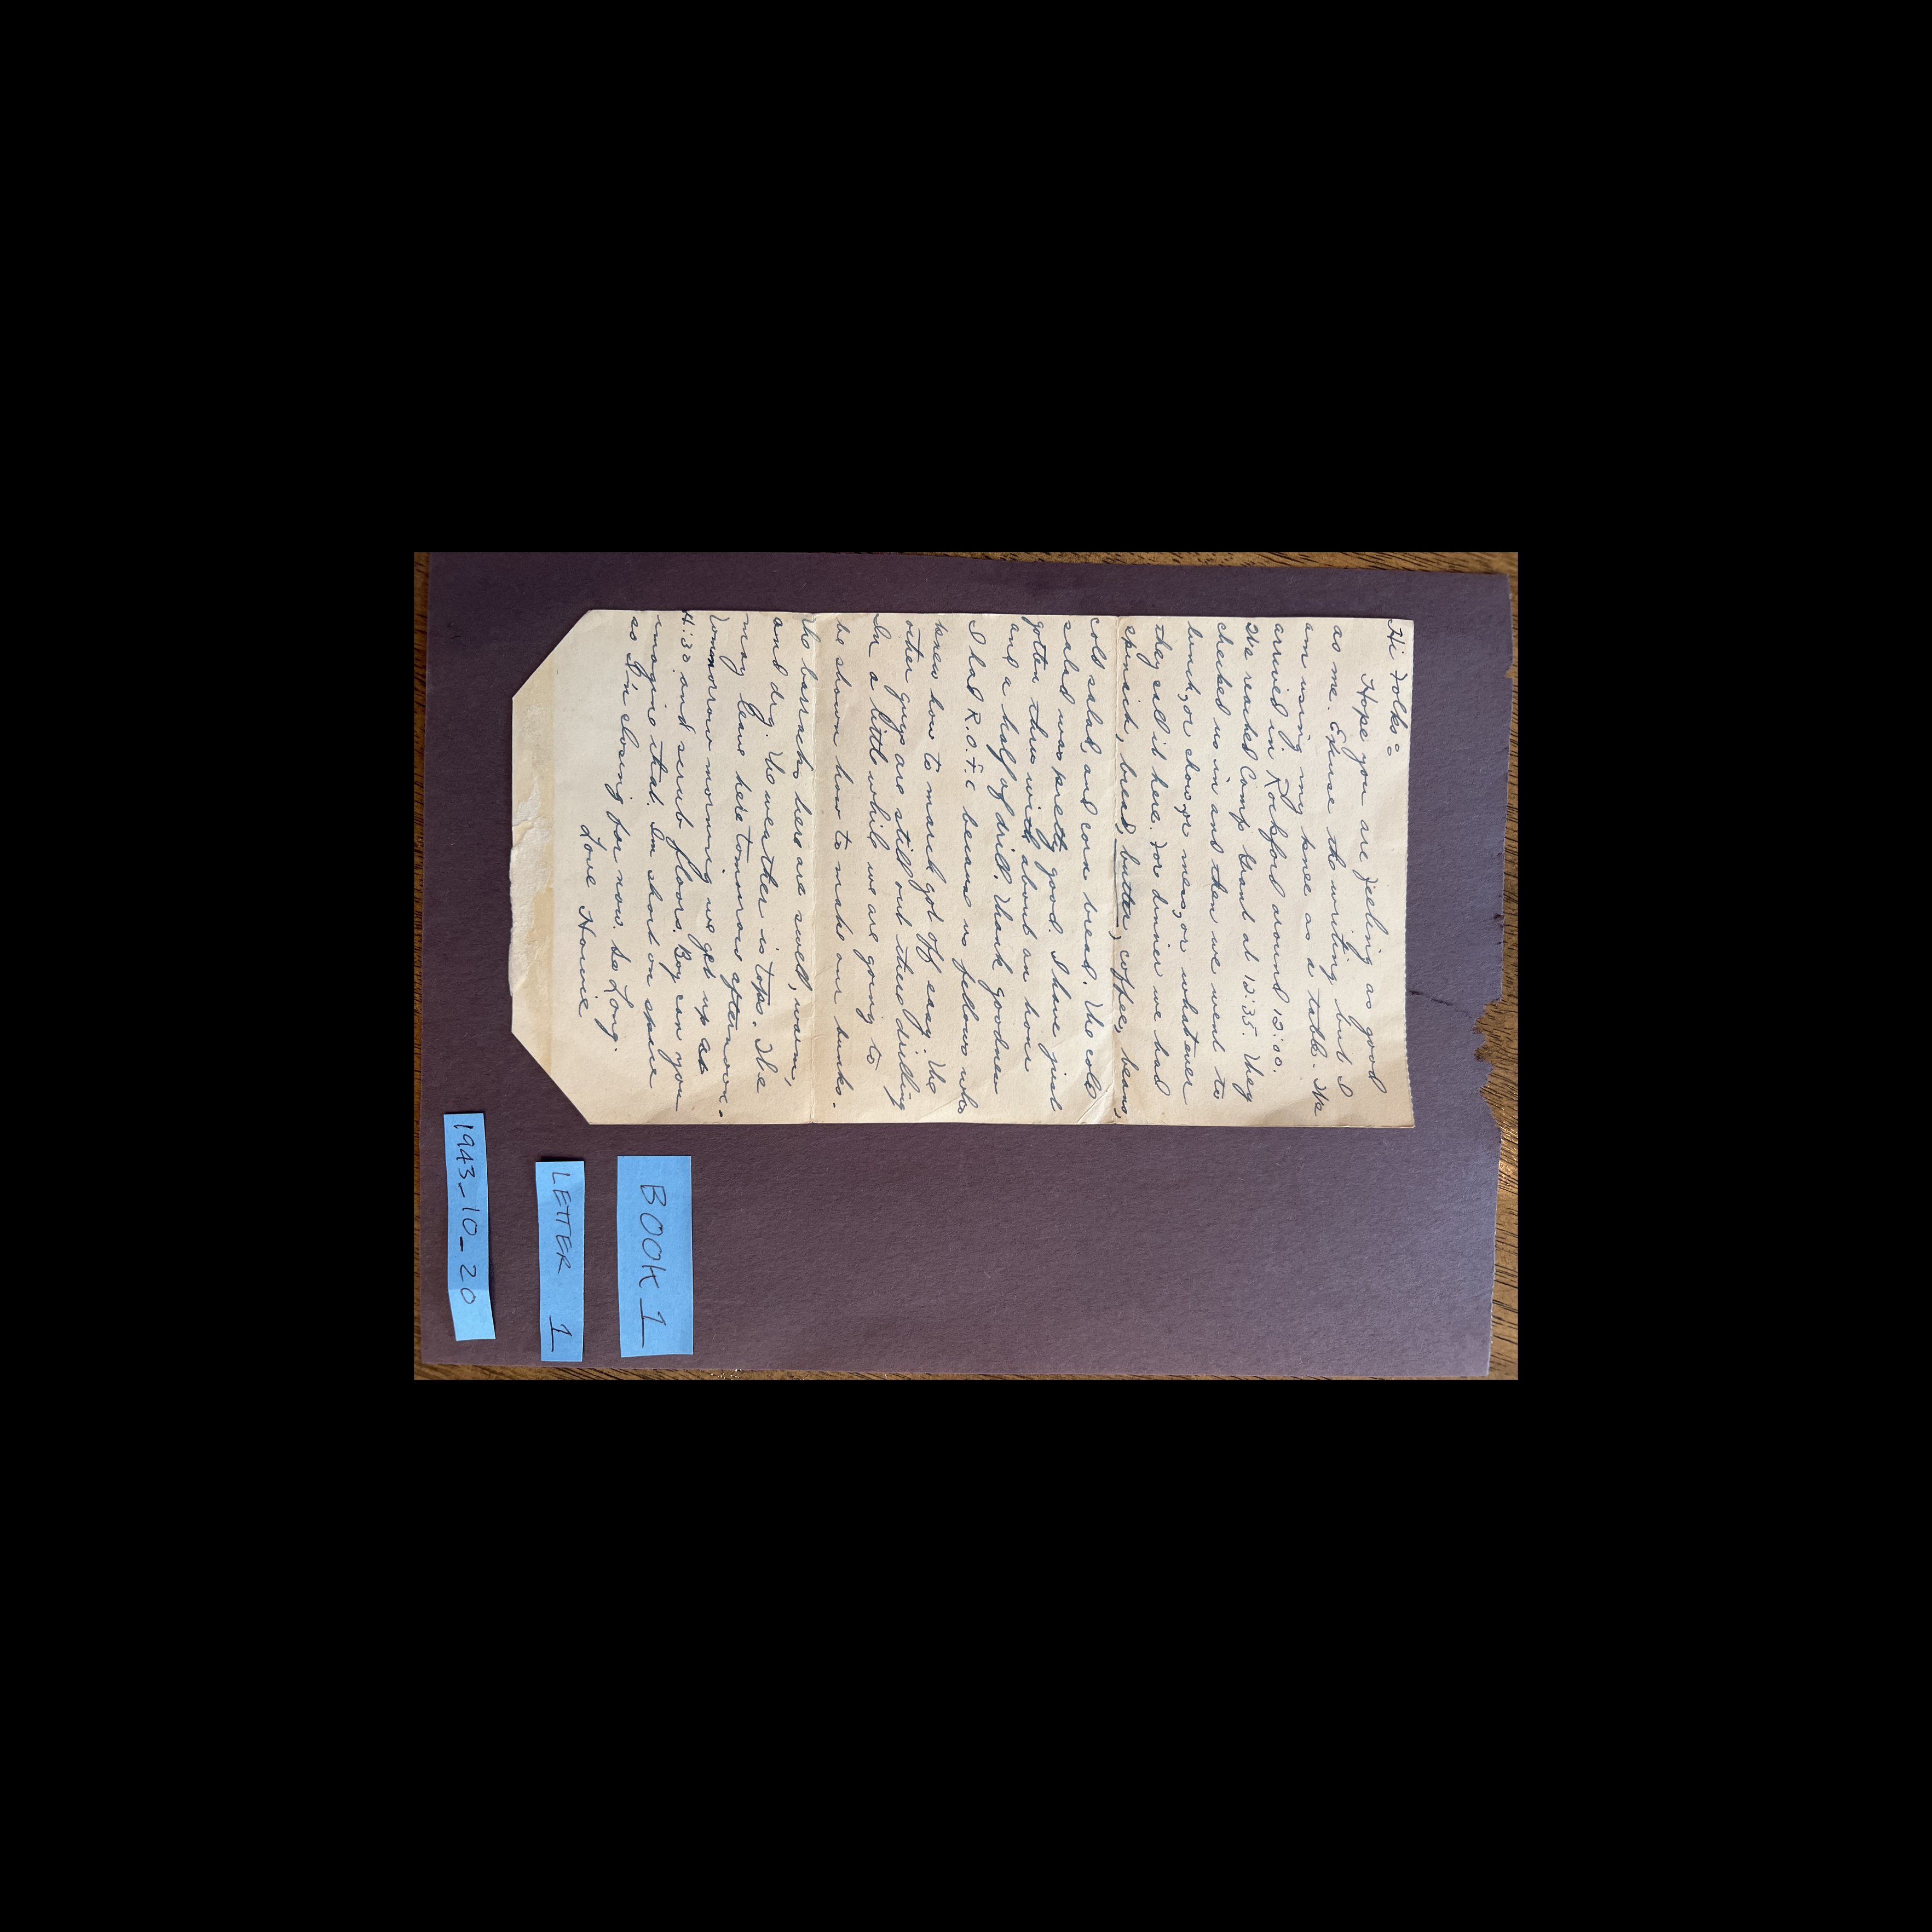 Hi Folks:
Hope you are feeling as good
as me. Excuse the writing but I
am using my knee as a table. We
arrived in Rockford around 12:00.
We reached Camp Grant at 12:35. They
checked us in and then we went to
lunch, or chow, or mess, or whatever
they call it here. For dinner we had
spinach, bread, butter, coffee, beans,
cold salad, and corn bread. The cold
salad was pretty good. I have just
gotten thru with about an hour
and a half of drill. Thank goodness
I had R.O.T.C because us fellows who
knew how to march got off easy. The
other guys are still out there drilling
In a little while we are going to
be shown how to make our bunks.
The barracks here are swell, warm,
and dry. The weather is tops. We
may leave here tommorow afternoon.
Tommorrow morning we get up at
4:30 and scrub floors. Boy can you
imagine that. Im short on space
so I'm closing for now. So Long.
Love Howie
BOOK 1
LETTER 1
1943_10_20